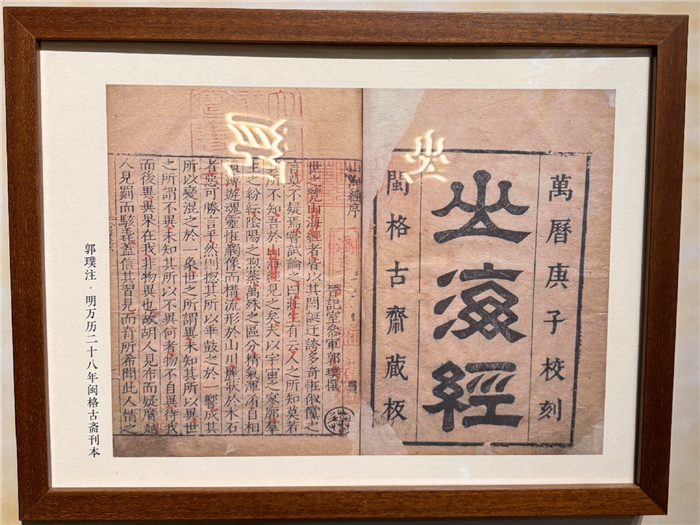 萬曆庚子校刻
山海經
閩格古齋藏板
山海經序
晉記室參軍郭璞撰
世之覽山海經者皆以其閎誕迂誇多奇怪俶儻之
言莫不疑焉嘗試論之曰莊生有云人之所知莫若
其所不知吾於山海經見之矣夫以宇宙之寥廓羣
生之紛紜陰陽之煦蒸萬殊之區分精氣渾淆自相
濆薄遊魂靈怪觸像而構流形於山川麗狀於木石
者惡可勝言乎然則揔其所以乖鼓之於一響成其
所以變混之於一象世之所謂異未知其所以異世
之所謂不異未知其所以不異何者物不自異待我
而後異異果在我非物異也故胡人見布而疑黂越
人見罽而駭毳葢信其習見而奇所希聞此人情之
郭璞注·明万历二十八年闽格古斋刊本